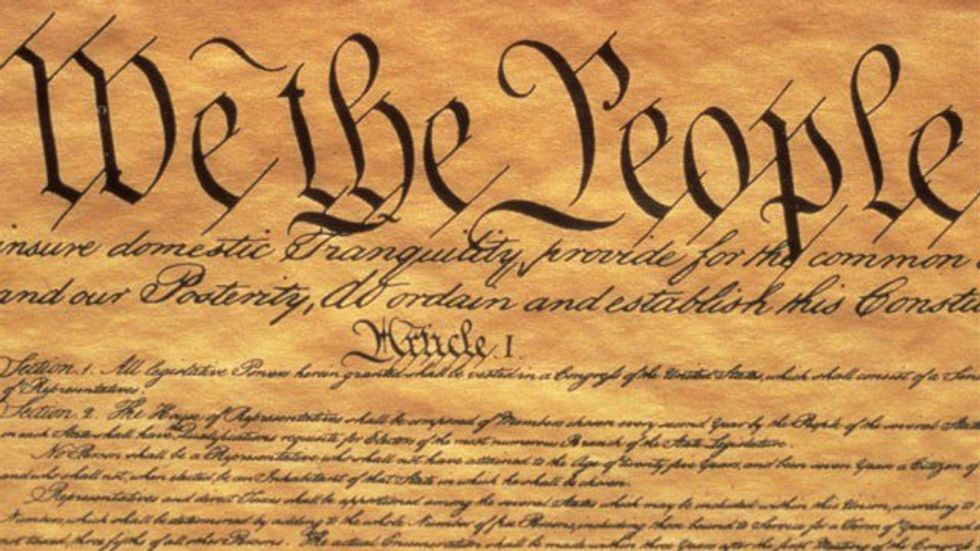 We the People
insure domestic Tranquility, provide for the common
and our Posterity, do ordain and establish this Const
Article. I.
Section. 1. All legislative Powers herein granted shall be vested in a Congress of the United States, which shall consist of a Sen
of Representatives.
Section. 2. The House of Representatives shall be composed of Members chosen every second Year by the People of the several Stat
in each State shall have Qualifications requisite for Electors of the most numerous Branch of the State Legislature.
No Person shall be a Representative who shall not have attained to the Age of twenty five Years, and been seven Years a Citizen of
and who shall not, when elected, be an Inhabitant of that State in which he shall be chosen.
Representatives and direct Taxes shall be apportioned among the several States which may be included within this Union, according to
Numbers, which shall be determined by adding to the whole Number of free Persons, including those bound to Service for a Term of Years, and
not taxed, three fifths of all other Persons. The actual Enumeration shall be made within three Years after the first Meeting of the Congress